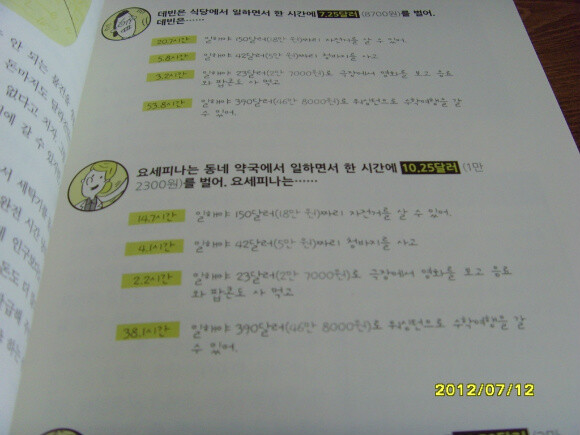 데빈은 식당에서 일하면서 한 시간에 7.25달러 (8700원)를 벌어.
데빈은……
20.7시간 일해야 150달러(18만 원)짜리 자전거를 살 수 있어.
5.8시간 일해야 42달러(5만 원)짜리 청바지를 사고
3.2시간 일해야 23달러(2만 7000원)로 극장에서 영화를 보고 음료
와 팝콘도 사 먹고
53.8시간 일해야 390달러(46만 8000원)로 워싱턴으로 수학여행을 갈
수 있어.
요세피나는 동네 약국에서 일하면서 한 시간에 10.25달러 (1만
2300원)를 벌어. 요세피나는……
14.7시간 일해야 150달러(18만 원)짜리 자전거를 살 수 있어.
4.1시간 일해야 42달러(5만 원)짜리 청바지를 사고
2.2시간 일해야 23달러(2만 7000원)로 극장에서 영화를 보고 음료
와 팝콘도 사 먹고
38.1시간 일해야 390달러(46만 8000원)로 워싱턴으로 수학여행을 갈
수 있어.
2012/07/12